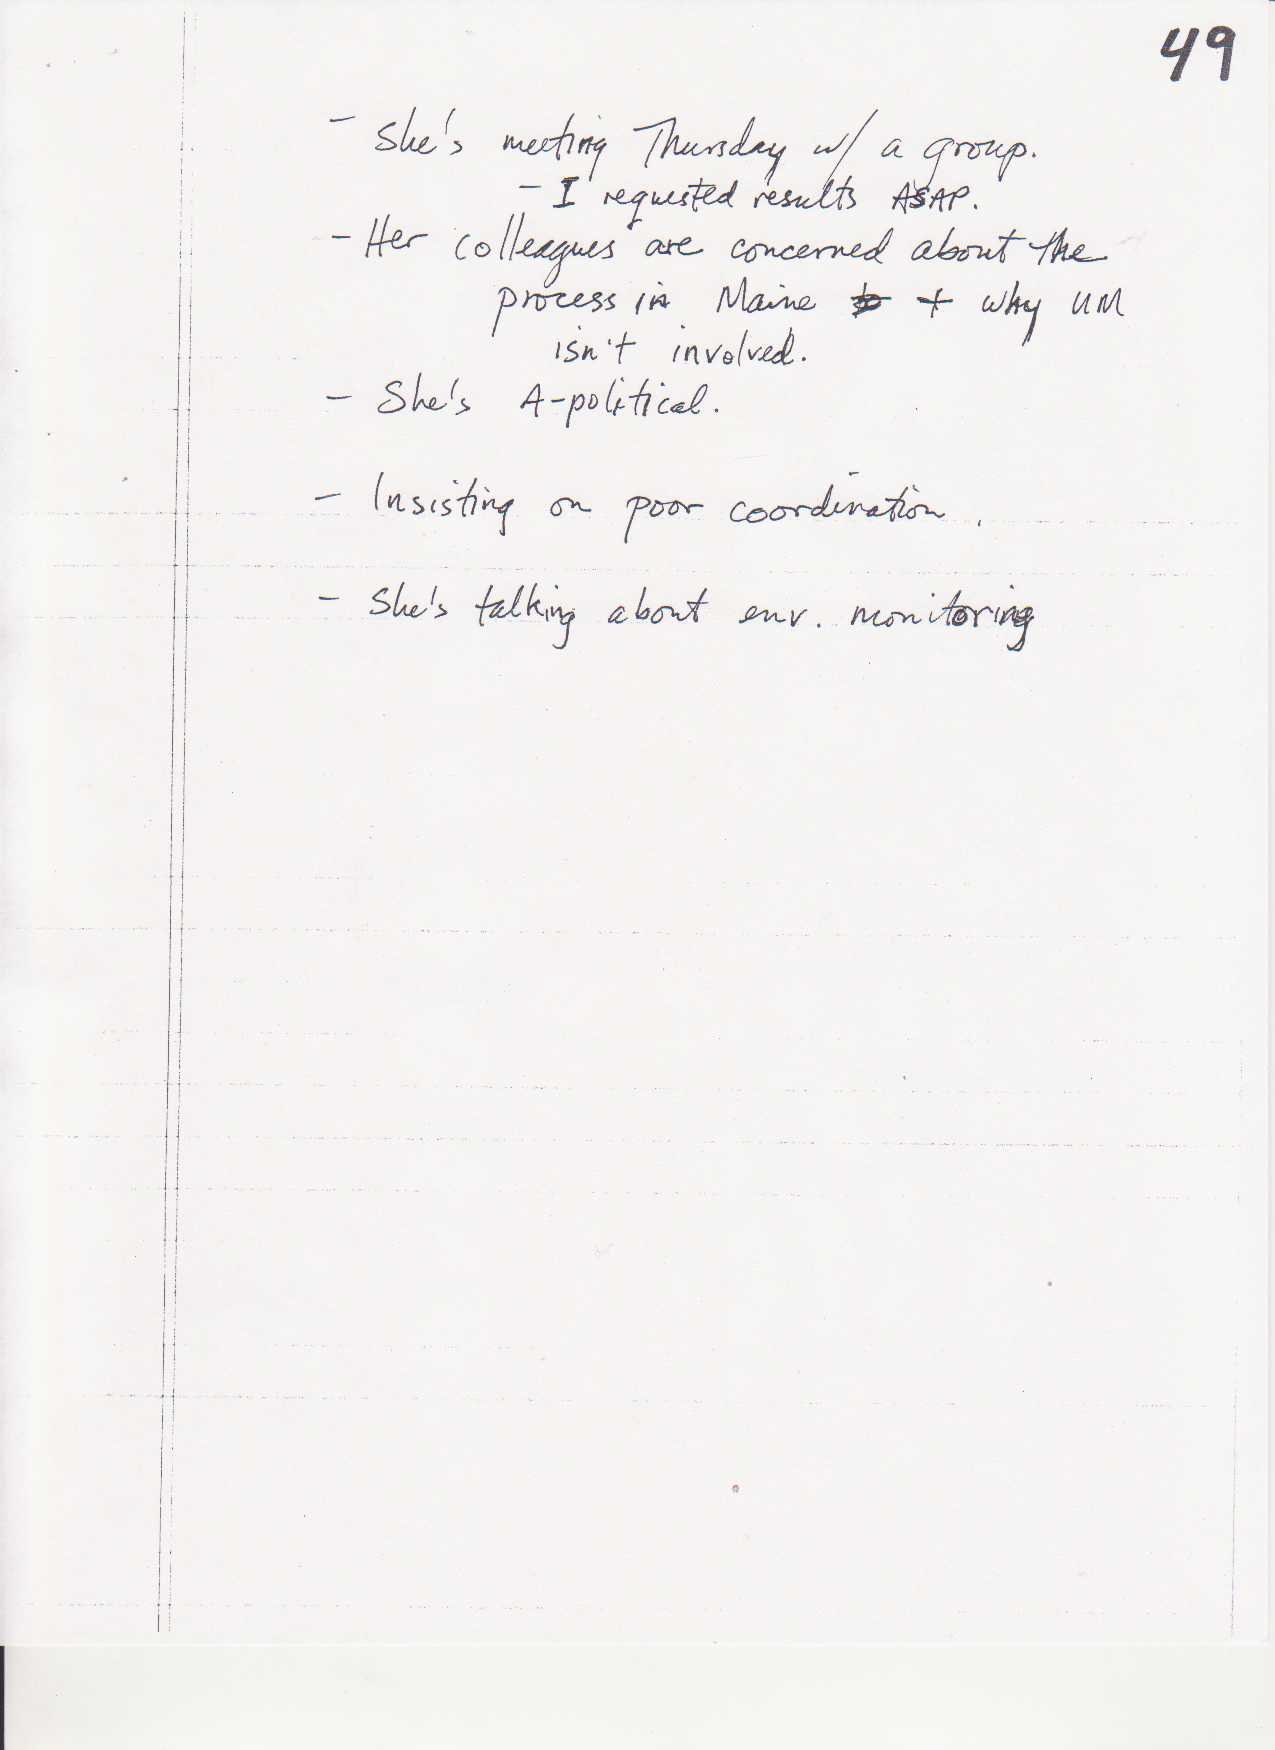 49
- She's meeting Thursday w/ a group.
- I requested results ASAP.
- Her colleagues are concerned about the
process in Maine + why UM
isn't involved.
- She's A-political.
- Insisting on poor coordination.
- She's talking about env. monitoring